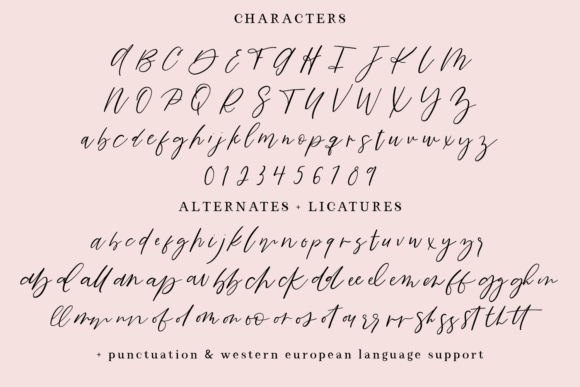 CHARACTERS
A B C D E F G H I J K L M
N O P Q R S T U V W X Y Z
a b c d e f g h i j k l m n o p q r s t u v w x y z
0 1 2 3 4 5 6 7 8 9
ALTERNATES + LICATURES
a b c d e f g h i j k l m n o p q r s t u v w x y z r
ab al all an ap av bb ch ck dd ee el em en ff gg gh in
ll mm nn of ol om on oo or os ot ou rr rr sh ss st th tt
+ punctuation & western european language support